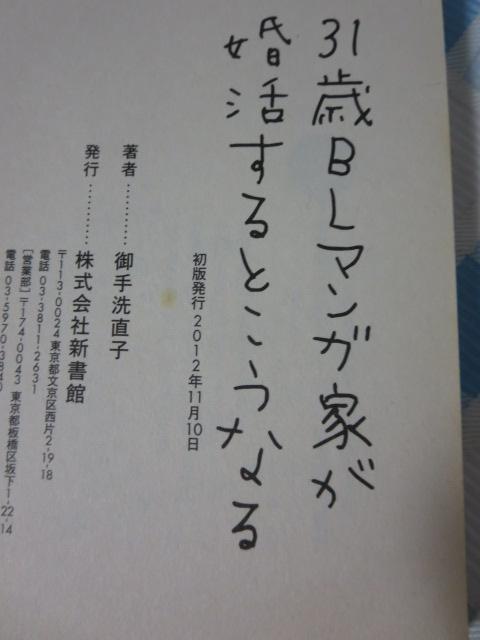 31歳BLマンガ家が
婚活するとこうなる
初版発行 2012年11月10日
著者…………御手洗直子
発行…………株式会社新書館
〒113-0024 東京都文京区西片2-19-18
電話 03-3811-2631
[営業部]〒174-0043 東京都板橋区坂下1-22-14
電話 03-5970-3840